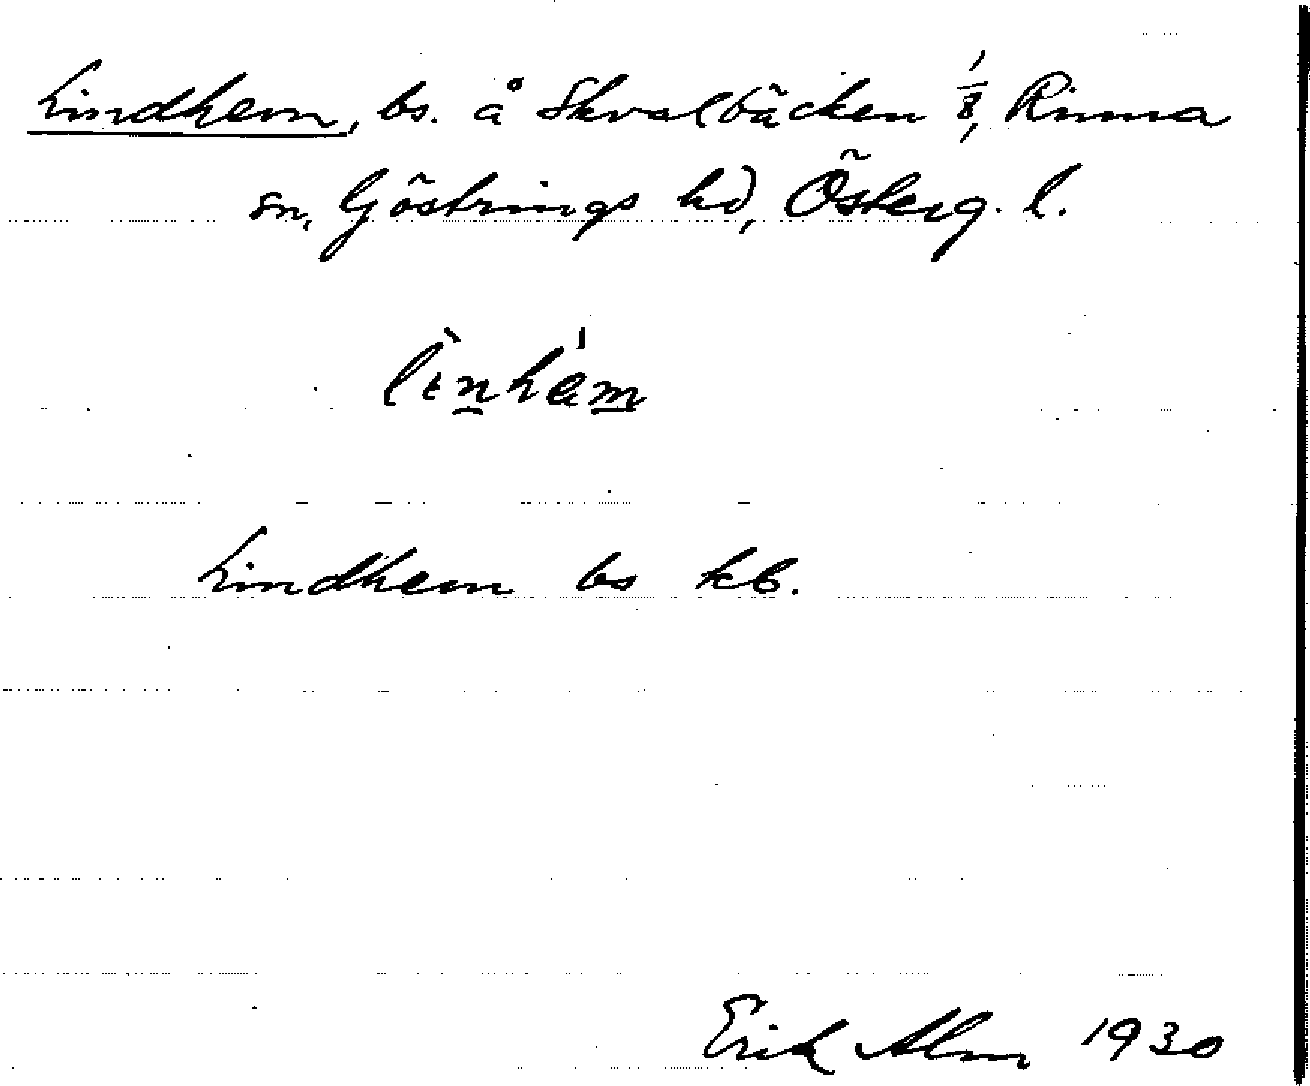 Lindhem, bs. å Skvalbäcken 1/8, Rinna
sn, Göstrings hd, Österg. l.
Lindhem bs kb.
Erik Alm 1930